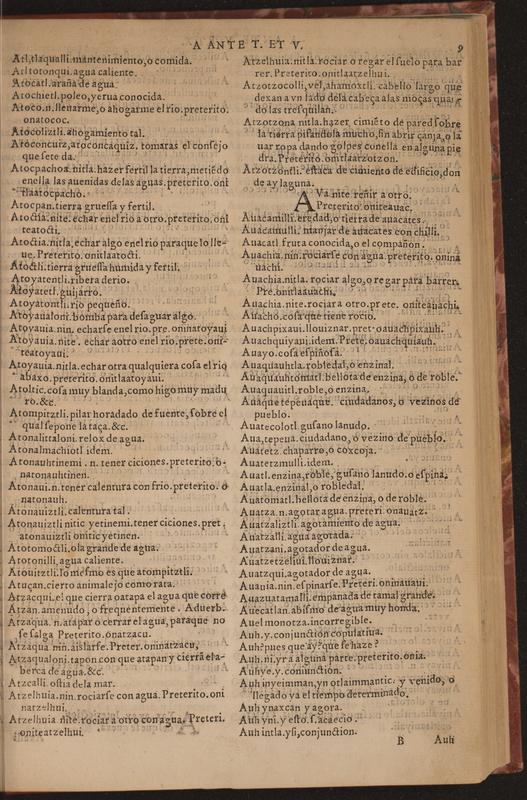 A ANTE T. ET V.
9
Atl, tlaqualli. mantenimiento, o comida.
Atl totonqui. agua caliente.
Atocatl. araña de agua.
Atochietl. poleo, yerua conocida.
Atoco. n. llenarme, o ahogarme el rio. preterito.
onatococ.
Atocoliztli. ahogamiento tal.
Atoconcuiz, atoconcaquiz. tomaras el consejo
que se te da.
Atocpachoa. nitla. hazer fertil la tierra, metiẽdo
en ella las auenidas de las aguas. preterito. oni
tlaatocpacho.
Atocpan. tierra gruessa y fertil.
Atoctia. nite. echar en el rio a otro. preterito. oni
teatocti.
Atoctia. nitla, echar algo en el rio para que lo lle-
ue. Preterito. onitlaatocti.
Atoctli. tierra gruessa humida y fertil.
Atoyatentli. ribera de rio.
Atoyatetl. guijarro.
Atoyatontli. rio pequeño.
Atoyaualoni. bomba para desaguar algo.
Atoyauia. nin. echarse en el rio. pre. oninatoyaui
Atoyauia. nite. echar a otro en el rio. prete. oni-
teatoyaui.
Atoyauia. nitla. echar otra qualquiera cosa el rio
abaxo. preterito. onitlaatoyaui.
Atoltic. cosa muy blanda, como higo muy madu
ro. &c.
Atompitztli. pilar horadado de fuente, sobre el
qual se pone la taça. &c.
Atonalittaloni. relox de agua.
Atonalmachiotl idem.
Atonauhtinemi. n. tener ciciones. preterito. o-
natonauhtinen.
Atonaui. n. tener calentura con frio. preterito. o
natonauh.
Atonauiztli. calentura tal.
Atonauiztli nitic yetinemi. tener ciciones. pret.
atonauiztli onitic yetinen.
Atotomoctli. ola grande de agua.
Atotonilli, agua caliente.
Atouitztli. lo mesmo es que atompitztli.
Atuçan. cierto animalejo como rata.
Atzacqui. el que cierra o atapa el agua que corre
Atzan. amenudo, o frequentemente. Aduerb.
Atzaqua. n. atapar o cerrar el agua, paraque no
se salga Preterito. onatzacu.
Atzaqua. nin. aislarse. Preter. oninatzacu.
Atzaqualoni. tapon con que atapan y cierrã el al-
berca de agua. &c.
Atzcalli. ostia de la mar.
Atzelhuia. nin. rociarse con agua. Preterito. oni
natzelhui.
Atzelhuia nite. rociar a otro con agua. Preteri.
oniteatzelhui.
Atzelhuia. nitla. rociar o regar el suelo para bar
rer. Preterito. onitlaatzelhui.
Atzotzocolli, vel, ahamoxtli. cabello largo que
dexan a vn lado dela cabeça a las moças quan
do las tresquilan.
Atzotzona nitla. hazer cimiẽto de pared sobre
la tierra pisandola mucho, sin abrir çanja, o la
uar ropa dando golpes con ella en alguna pie
dra. Preterito. onitlaatzotzon.
Atzotzontli. estaca de cimiento de edificio, don
de ay laguna.
AVa. nite. reñir a otro.
Preterito. oniteauac.
Auacamilli. eredad, o tierra de auacates.
Auacamulli. manjar de auacates con chilli.
Auacatl fruta conocida, o el compañon.
Auachia. nin. rociarse con agua. preterito. onina
uachi.
Auachia. nitla. rociar algo, o regar para barrer.
Pre. onitlaauachi.
Auachia. nite. rociar a otro. prete. oniteauachi.
Auacho. cosa que tiene rocio.
Auachpixaui. llouiznar. pret. oauachpixauh.
Auachquiyaui. idem. Prete, oauachquiauh.
Auayo. cosa espinosa.
Auaquauhtla. robledal, o enzinal.
Auaquauhtomatl. bellota de enzina, o de roble.
Auaquauitl. roble, o enzina.
Auaque tepeuaque. ciudadanos, o vezinos de
pueblo.
Auatecolotl. gusano lanudo.
Aua, tepeua. ciudadano, o vezino de pueblo.
Auatetz. chaparro, o coxcoja.
Auaterzmulli. idem.
Auatl. enzina, roble, gusano lanudo. o espina.
Auatla. enzinal, o robledal.
Auatomatl. bellota de enzina, o de roble.
Auatza. n. agotar agua. preteri. onauatz.
Auatzaliztli. agotamiento de agua.
Auatzalli. agua agotada.
Auatzani. agotador de agua.
Auatzetzeliui. llouiznar.
Auatzqui. agotador de agua.
Auauia. nin. espinarse. Preteri. oninauaui.
Auazuatamalli. empanada de tamal grande.
Auecatlan. abismo de agua muy honda.
Auel monotza. incorregible.
Auh. y. conjunction copulatiua.
Auh? pues que ay? que se haze?
Auh. ni, yr a alguna parte. preterito. onia.
Auhye. y. conjunction.
Auh inyeimman, yn otlaimmantic. y venido, o
llegado ya el tiempo determinado.
Auh ynaxcan y agora.
Auh yni. y esto. s. acaecio.
Auh intla. ysi, conjunction.
B
Auh